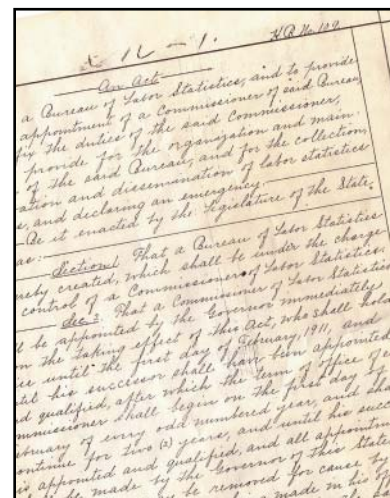 H.B. No. 109.
An Act
a Bureau of Labor Statistics, and to provide
appointment of a Commissioner of said Bureau,
fix the duties of the said Commissioner,
provide for the organization and main-
of the said Bureau, and for the collection,
ation and dissemination of labor statistics
e, and declaring an emergency.
Be it enacted by the Legislature of the State
as:
Section 1 That a Bureau of Labor Statistics
reby created, which shall be under the charge
control of a Commissioner of Labor Statistics.
Sec. 2 That a Commissioner of Labor Statistics
ll be appointed by the Governor immediately
on the taking effect of this Act, who shall hold
ice until the first day of February, 1911, and
ntil his successor shall have been appointed
nd qualified, after which the term of office of
ommissioner shall begin on the first day of
ebruary of every odd numbered year, and sha
ontinue for two (2) years, and until his succ
is appointed and qualified, and all appointm
be made by the Governor of this State
be removed for cause by
made in his